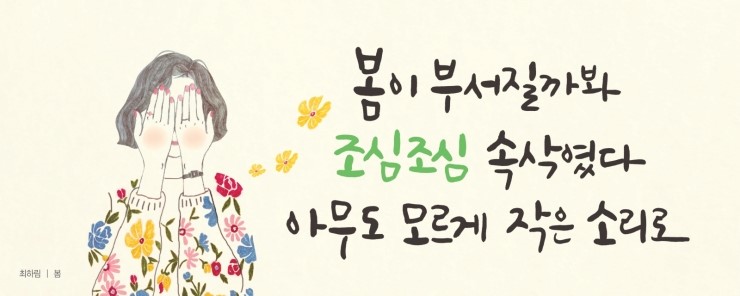 봄이 부서질까봐
조심조심 속삭였다
아무도 모르게 작은 소리로
최하림 | 봄